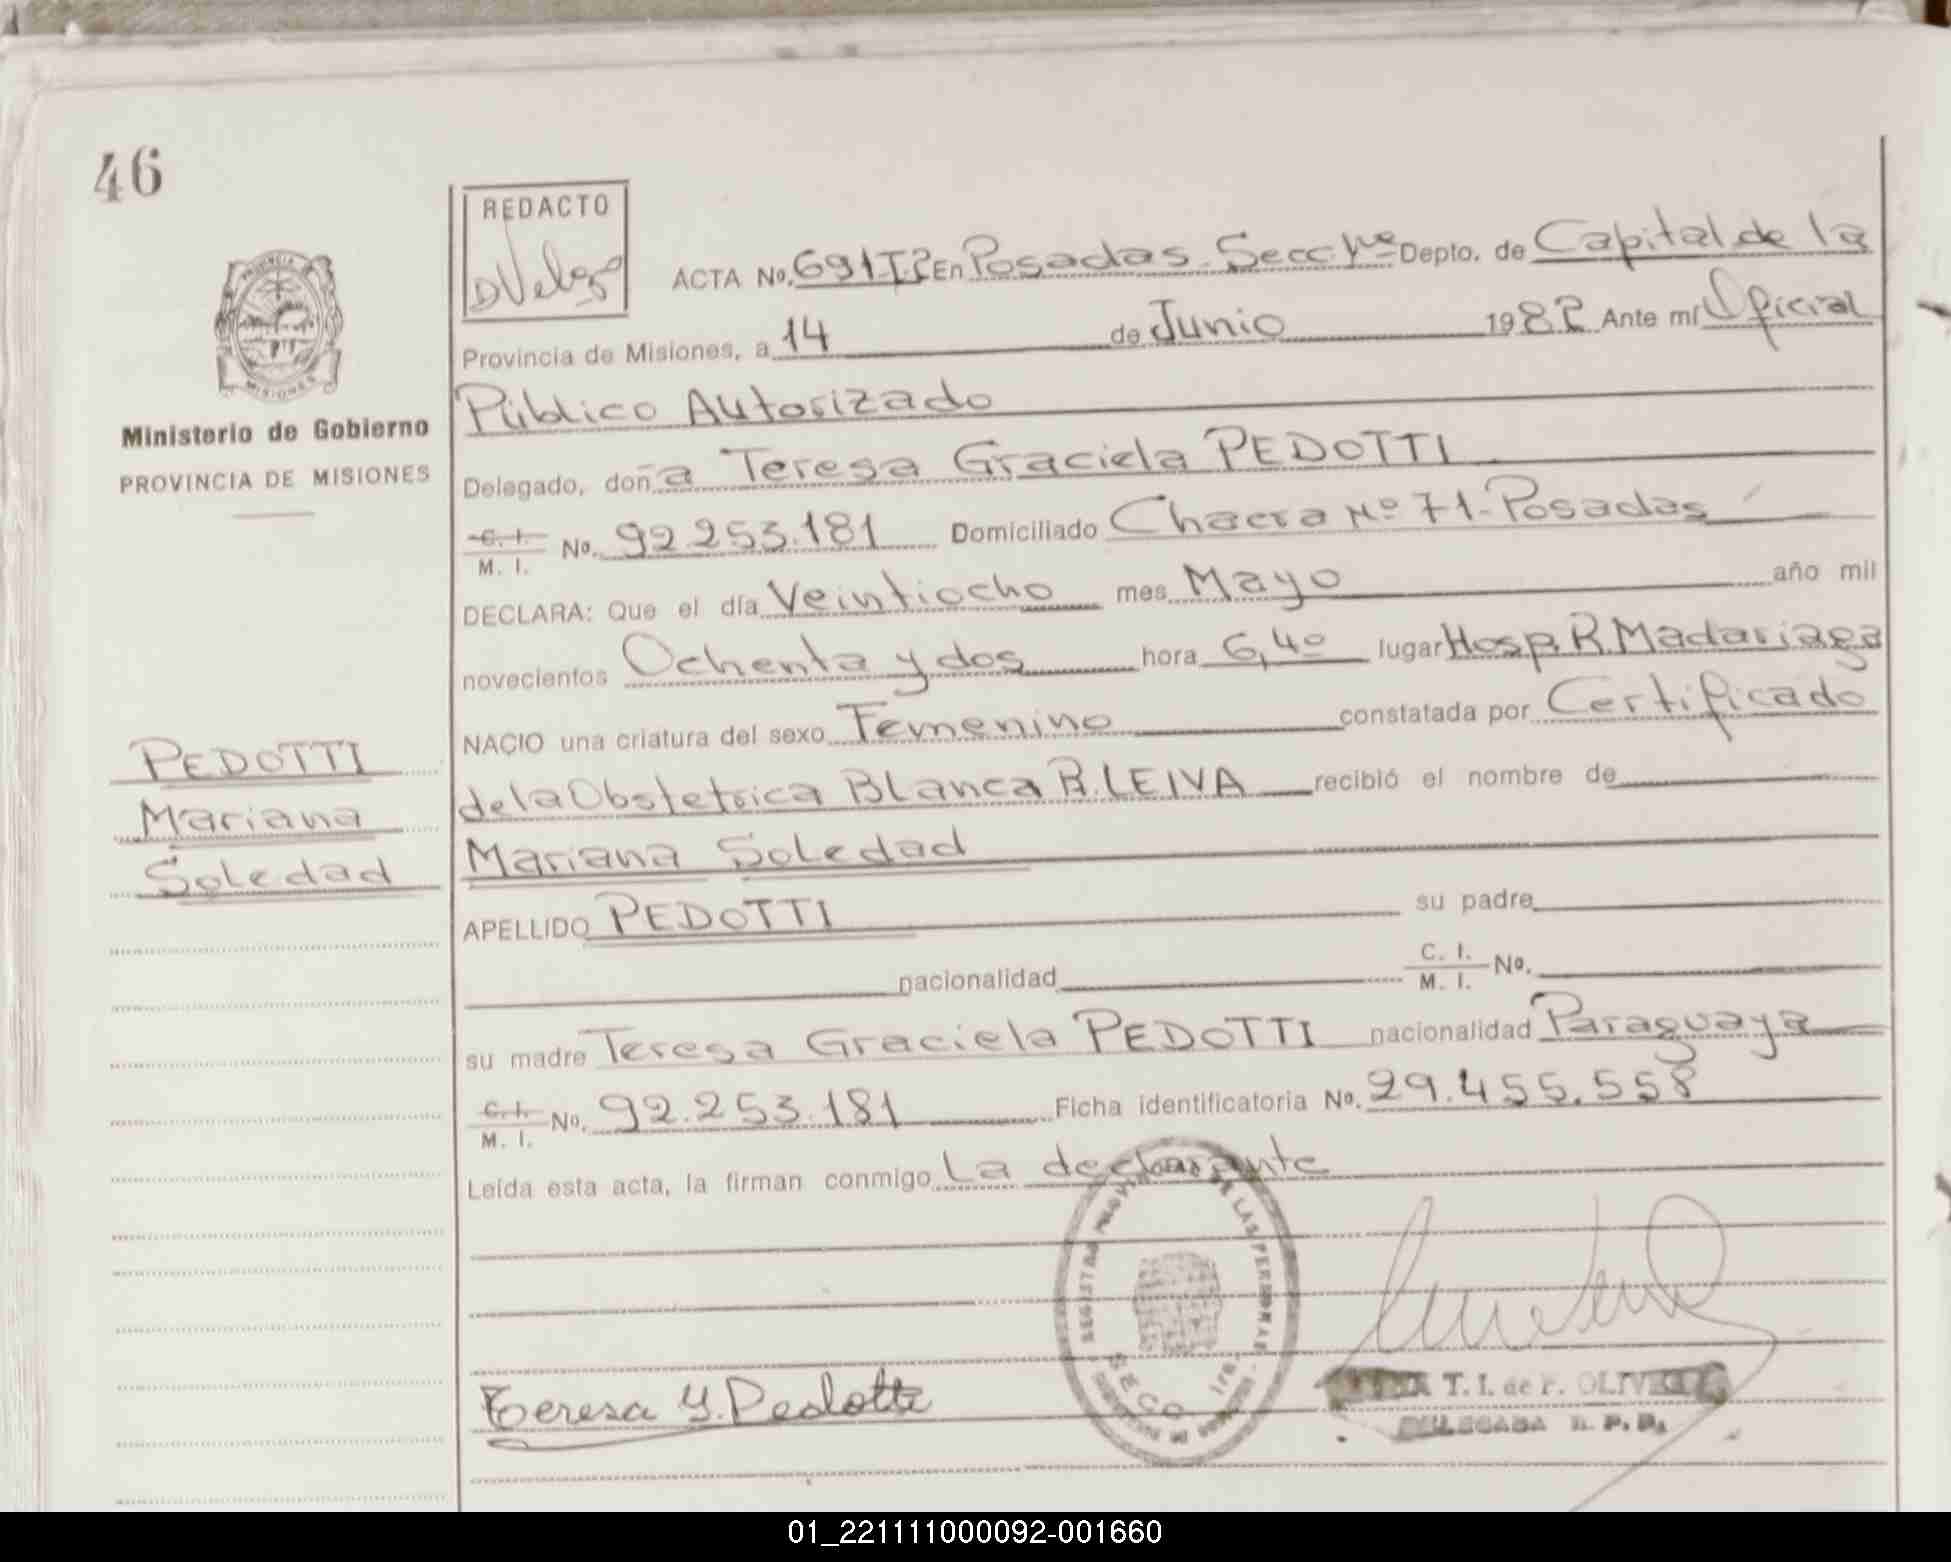 46
REDACTO
ACTA No. 691 En Posadas. Secc 1ra Depto. de Capital de la
Provincia de Misiones, a 14 de Junio 1982 Ante mí Oficial
Público Autorizado
Ministerio de Gobierno
PROVINCIA DE MISIONES
Delegado, doña Teresa Graciela PEDOTTI
C. I. M. I. No. 92.253.181 Domiciliado Chacra Nº 71-Posadas
DECLARA: Que el día Veintiocho mes Mayo año mil
novecientos Ochenta y dos hora 6,40 lugar Hosp. R. Madariaga
NACIO una criatura del sexo Femenino constatada por Certificado
de la Obstetrica Blanca R. LEIVA recibió el nombre de
Mariana Soledad
PEDOTTI
Mariana
Soledad
APELLIDO PEDOTTI su padre
nacionalidad C. I. M. I. No.
su madre Teresa Graciela PEDOTTI nacionalidad Paraguaya
C. I. M. I. No. 92.253.181 Ficha identificatoria No. 29.455.558
Leída esta acta, la firman conmigo La declarante
Teresa G. Pedotti
T. I. de F. OLIVERA
DELEGADA R. P. P.
01_221111000092-001660